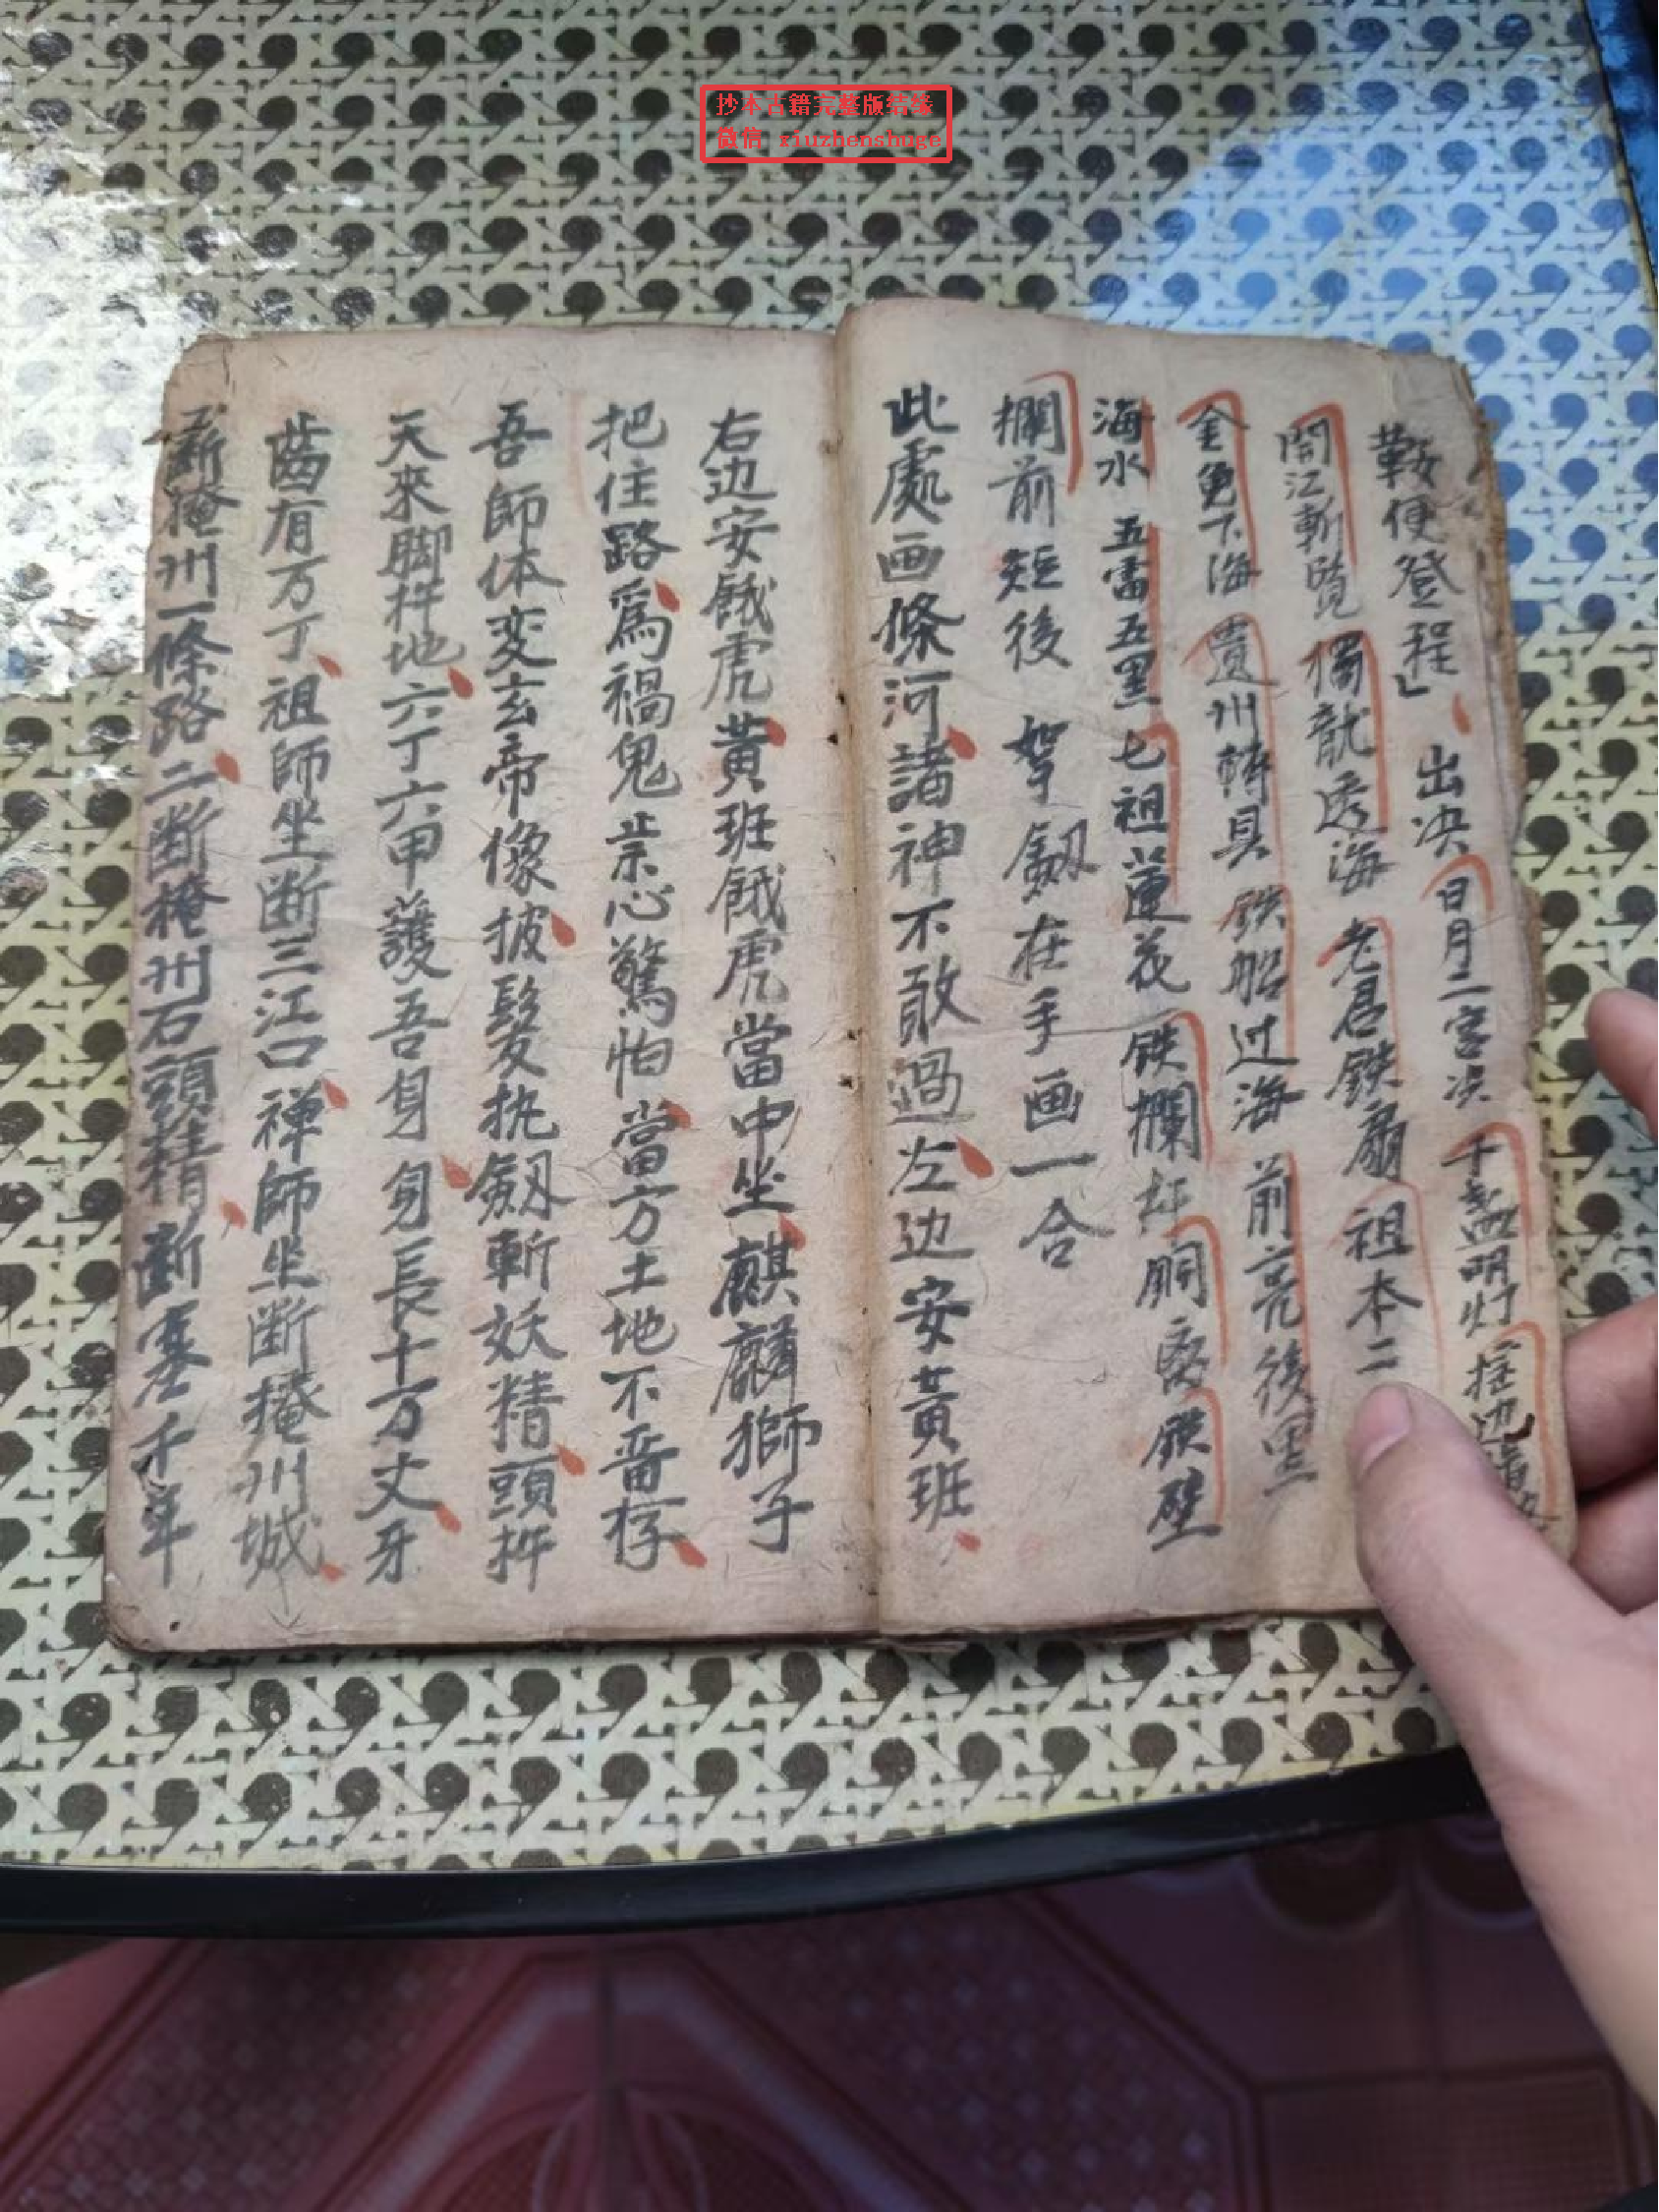 抄本古籍完整版结缘
微信 xiuzhenshuge
鞍便登程」 出决 日月二宫决 千盏明灯
開江斬 獨龍透海 老君鉄扇 祖本二
金兔下海 州轉具 鉄船过海 前亮後黑
海水 五雷五黑 七祖蓮花 鉄攔 铜 鉄壁
攔前短後 拏劔在手画一合
此處画條河諸神不敢過左边安黃班
右边安餓虎黄班餓虎當中坐麒麟獅子
把住路爲禍鬼祟心驚怕當方土地不畨存
吾師体变玄帝像披髮执劔斬妖精頭拃
天來脚拃地六丁六甲護吾身身長十万丈牙
齒有万丁祖師坐断三江口禅師坐断掩州城
断掩州一條路二断掩州石頭精断塞千年